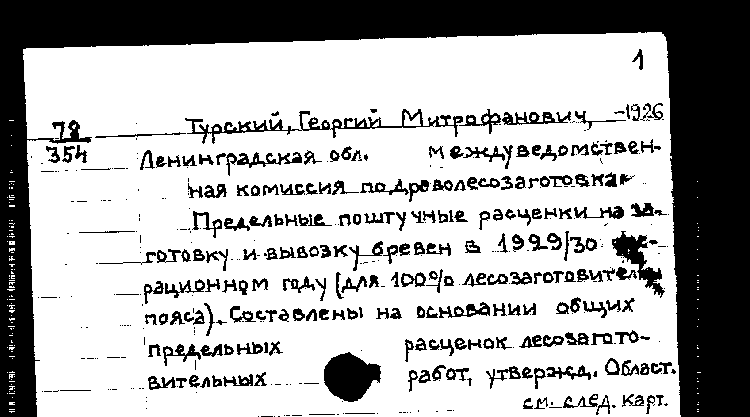 1
Турский, Георгий Митрофанович, -1926
78
354
Ленинградская обл. междуведомствен-
ная комиссия по дроволесозаготовкам
Предельные поштучные расценки на за-
готовку и вывозку бревен в 1929/30
рационном году (для 100% лесозаготовительн
пояса). Составлены на основании общих
предельных расценок лесозагото-
вительных работ, утвержд. Област.
см. след. карт.